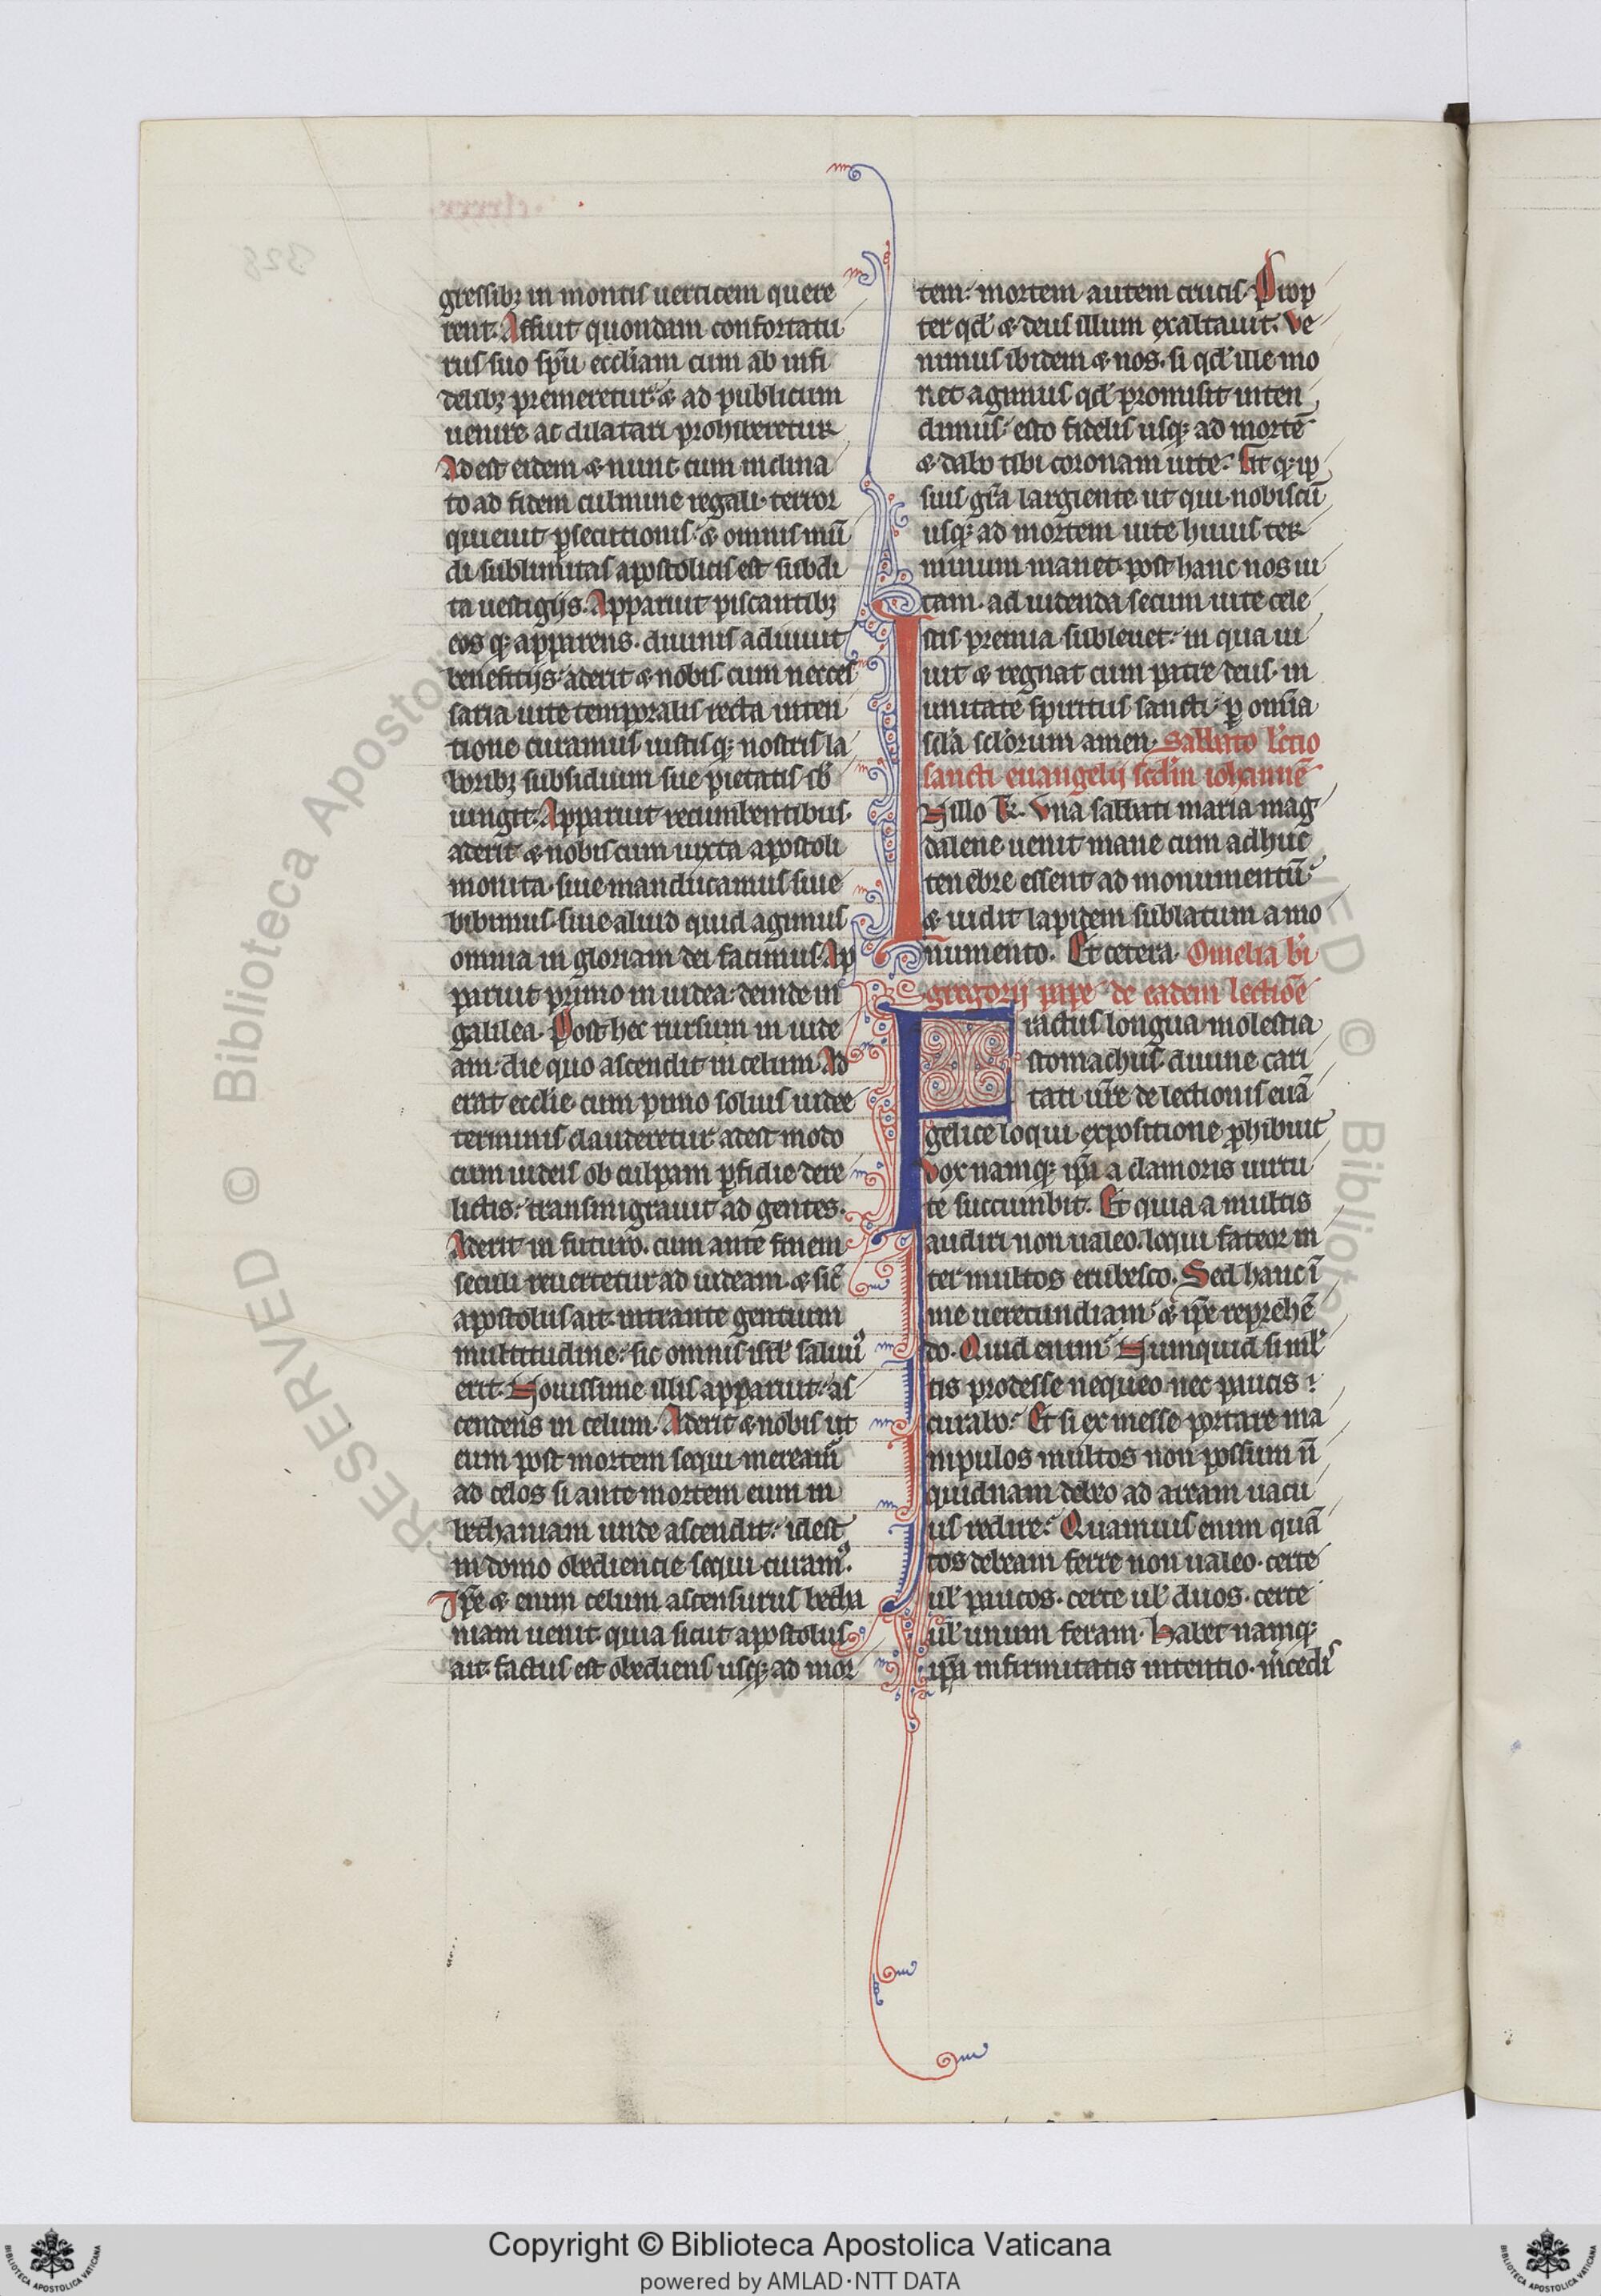 gressibꝫ in montis uerticem quere
rent. Affuit quondam confortatu
rus suo sp̄u eccl̄iam cum ab infi
delibꝫ premeretur. & ad publicum
uenire ac dilatari prohiberetur
Adest eidem & nunc cum inclina
to ad fidem culmine regali. terror
quieuit ꝑsecutionis. & omnis mū
di sublimitas apostolicis est subdi
ta uestigijs. Apparuit piscantibꝫ
eos qꝫ apparens. diuinis adiuuit
beneficijs. aderit & nobis cum neces
saria uite temporalis recta inten
tione curamus iustisqꝫ nostris la
boribꝫ subsidium sue pietatis sb̄
iungit. Apparuit recumbentibus.
aderit & nobiscum iuxta apostoli
monita. siue manducamus siue
bibimus. siue aliud quid agimus
omnia in gloriam dei facimus. Ap
paruit primo in iudea. deinde in
galilea. Post hec rursum in iude
am. die quo ascendit in celum. Ad
erat eccl̄ie. cum primo solius iudee
terminis clauderetur adest modo
cum iudeis ob culpam ꝑfidie dere
lictis. transmigrauit ad gentes.
Aderit in futuro. cum ante finem
seculi reuertetur ad iudeam. & sic̄
apostolus ait. intrante gentium
multitudine. sic omnis isrl̄ saluus
erit. Nouissime illis apparuit. as
cendens in celum. Aderit & nobis ut
eum post mortem sequi mereamur
ad celos si ante mortem eum in
bethaniam unde ascendit. idest
in domo obediencie sequi curamꝰ.
Ip̄e & enim celum ascensurus betha
niam uenit. quia sicut apostolus
ait. factus est obediens usqꝫ ad mor
tem. mortem autem crucis. Prop
ter qd̄ & deus illum exaltauit. Ve
nimus ibidem & nos. si qd̄ ille mo
net agimus qd̄ promisit inten
dimus. esto fidelis usqꝫ ad mortē
& dabo tibi coronam uite. Fit qꝫ ip
sius gr̄a largiente ut qui nobiscū
usqꝫ ad mortem uite huius ter
minum manet. post hanc nos ui
tam. ad uidenda secum uite cele
stis premia subleuet. in qua ui
uit & regnat cum patre deus. in
unitate spiritus sancti. ꝑ omīa
scl̄a scl̄orum amen. Sabbato lectio
sancti euangelij scd̄m iohannē
N illo t̄. Vna sabbati maria mag
dalene uenit mane cum adhuc
tenebre essent ad monumentū.
& uidit lapidem sublatum a mo
numento. Et cetera. Omelia bī
gregorij pape de eadem lectiōe
Fractus longua molestia
stomachus. diuine cari
tati ur̄e de lectionis euā
gelice loqui expositione ꝓhibuit
Vox namqꝫ ip̄a a clamoris uirtu
te succumbit. Et quia a multis
audiri non ualeo. loqui fateor in
ter multos erubesco. Sed hanc ī
me uerecundiam & ip̄e reprehē
do. Quid enim. Nunquid si ml̄
tis prodesse nequeo nec paucis
curabo. Et si ex messe portare ma
nipulos multos non possum n̄
quidnam debeo ad aream uacu
us redire. Quamuis enim quā
tos debeam ferre non ualeo. certe
ul̄ paucos. certe ul̄ duos. certe
ul̄ unum feram. Habet namqꝫ
ip̄a infirmitatis intentio. m̄cedis
© Biblioteca Apostolica
RESERVED
Copyright © Biblioteca Apostolica Vaticana
powered by AMLAD·NTT DATA
BIBLIOTECA APOSTOLICA VATICANA
BIBLIOTECA APOSTOLICA VATICANA